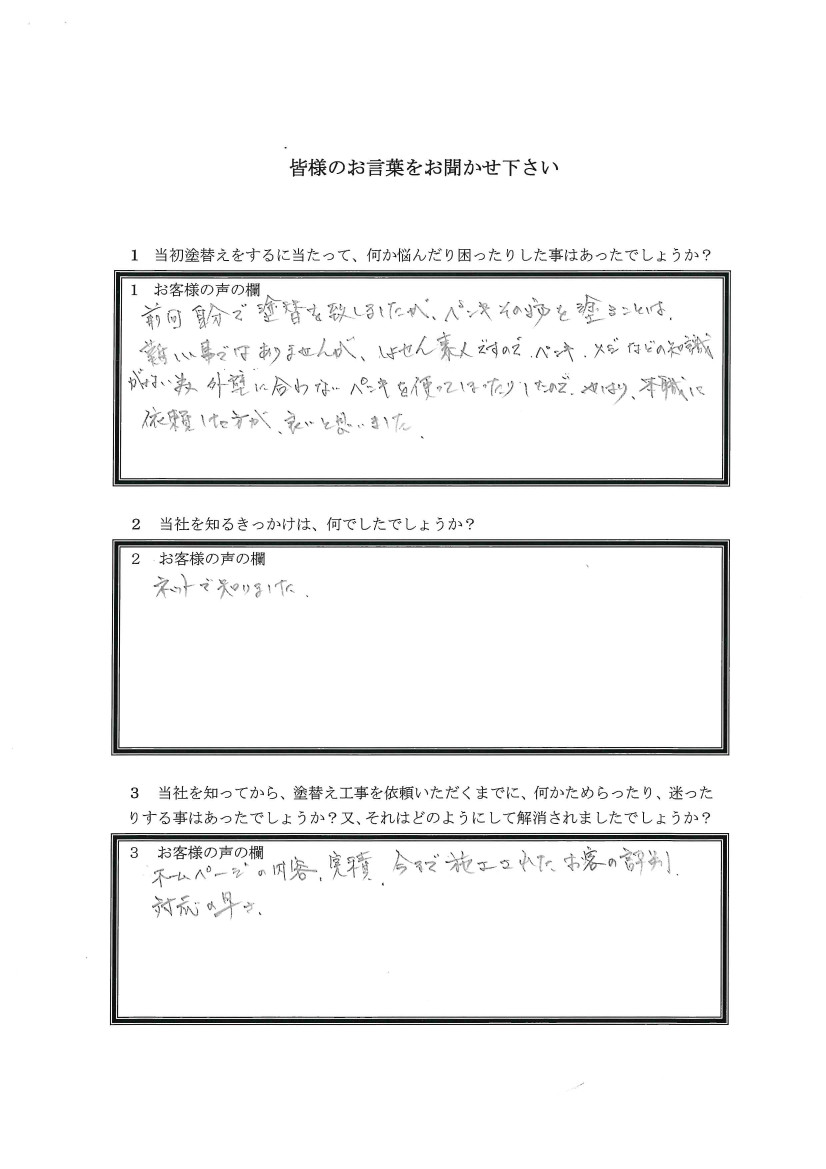 皆様のお言葉をお聞かせ下さい
1 当初塗替えをするに当たって、何か悩んだり困ったりした事はあったでしょうか？
1 お客様の声の欄
前回 自分で塗替を致しましたが、ペンキその物を塗ることは、
難しい事ではありませんが、しょせん素人ですので、ペンキ、メジなどの知識
がない為、外壁に合わないペンキを使ってしまったりしたので、やはり、本職に
依頼した方が、良いと思いました。
2 当社を知るきっかけは、何でしたでしょうか？
2 お客様の声の欄
ネットで知りました。
3 当社を知ってから、塗替え工事を依頼いただくまでに、何かためらったり、迷った
りする事はあったでしょうか？又、それはどのようにして解消されましたでしょうか？
3 お客様の声の欄
ホームページの内容、実積、今まで施工された、お客の評判、
対応の早さ、